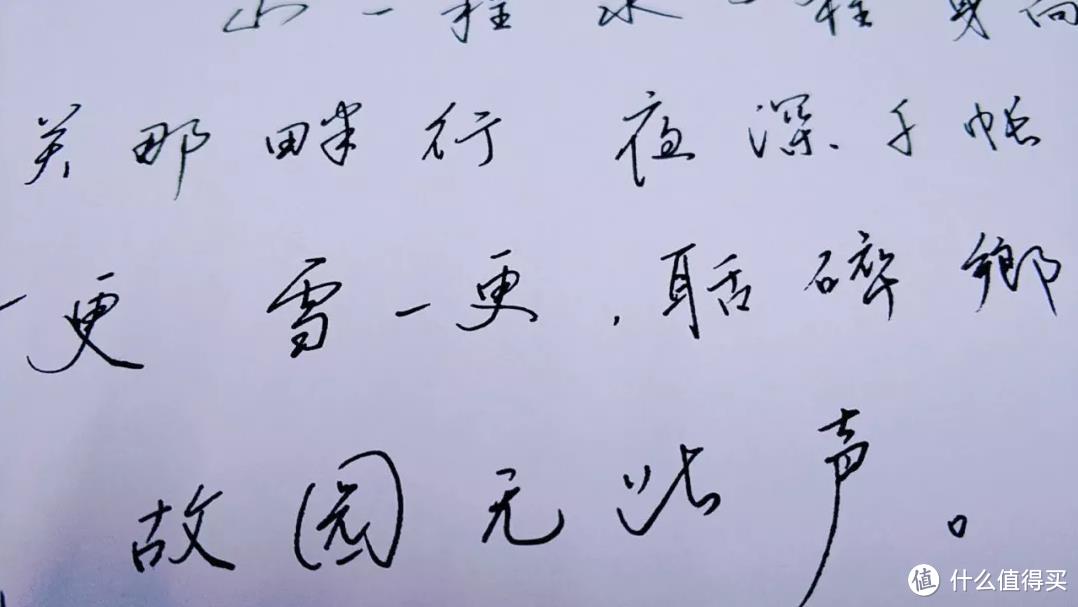 山一程水一程身向
关那畔行 夜深千帐
一更 雪一更，聒碎鄉
故园无此声。
值 什么值得买